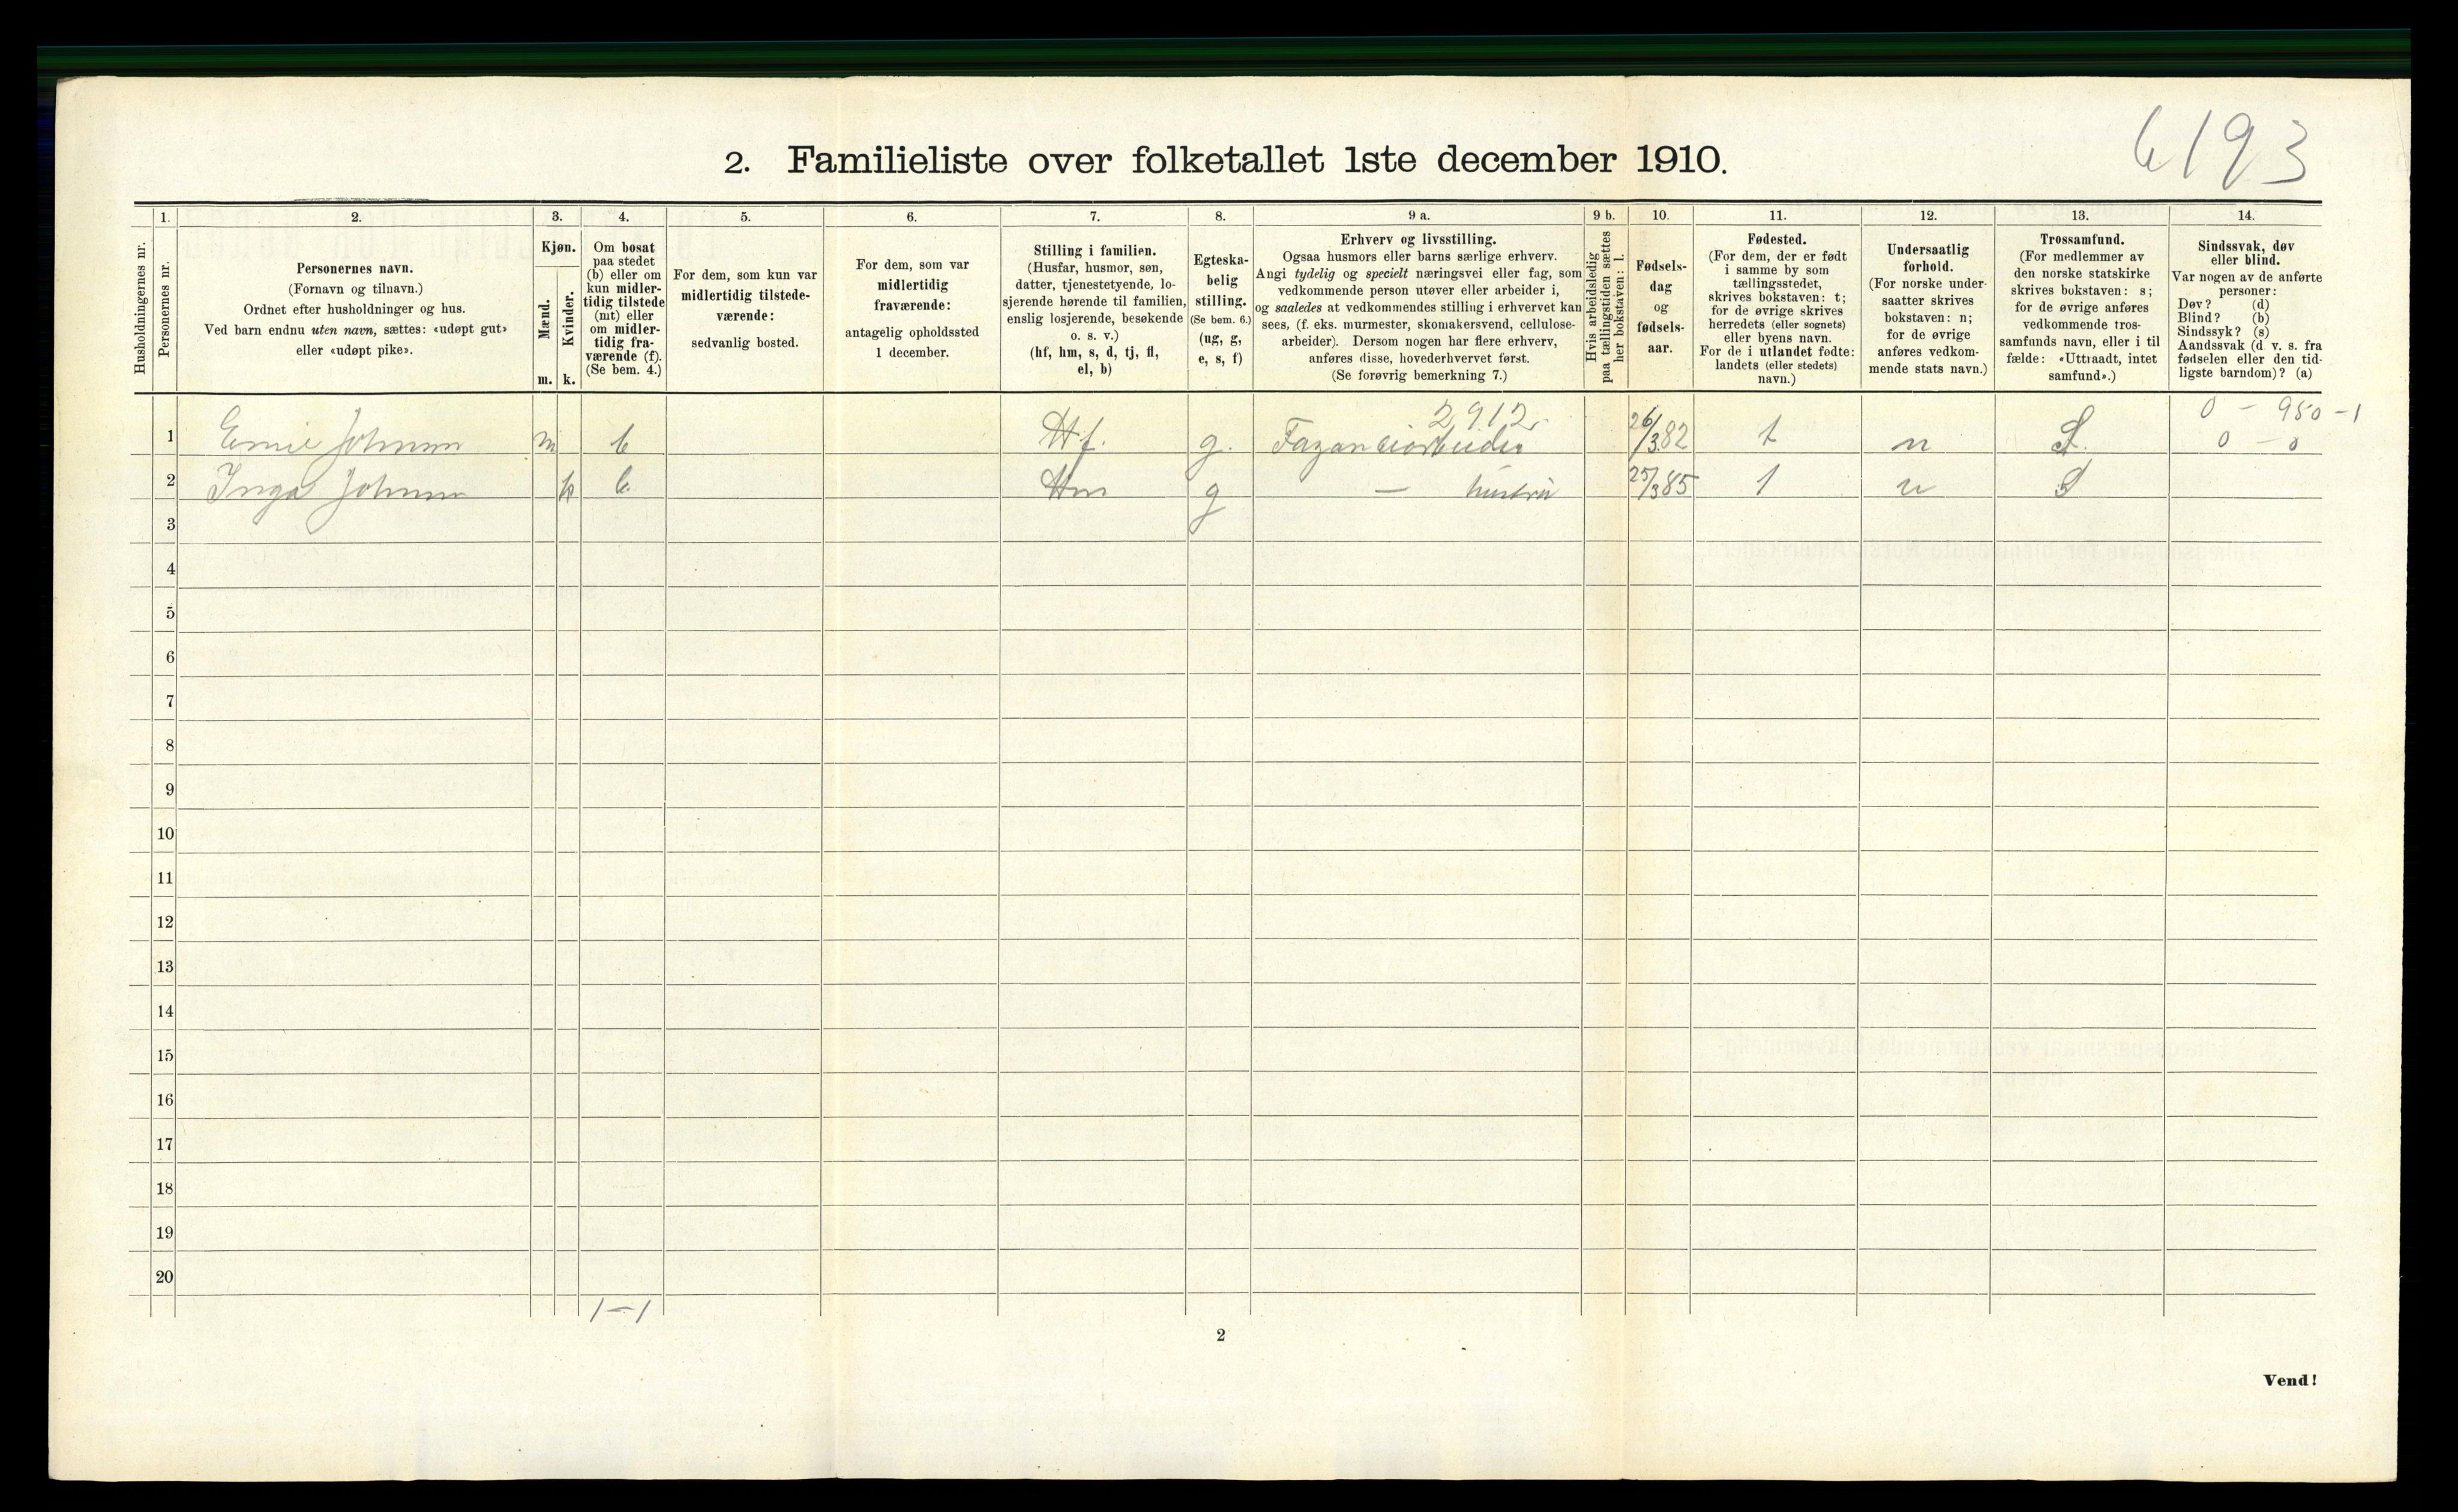 6193
2. Familieliste over folketallet 1ste december 1910.
Husholdningernes nr.
1.
Personernes nr.
2.
Personernes navn.
(Fornavn og tilnavn.)
Ordnet efter husholdninger og hus.
Ved barn endnu uten navn, sættes: «udøpt gut»
eller «udøpt pike».
3.
Kjøn.
Mænd.
Kvinder.
m. k.
4.
Om bosat
paa stedet
(b) eller om
kun midler-
tidig tilstede
(mt) eller
om midler-
tidig fra-
værende (f).
(Se bem. 4.)
5.
For dem, som kun var
midlertidig tilstede-
værende:
sedvanlig bosted.
6.
For dem, som var
midlertidig
fraværende:
antagelig opholdssted
1 december.
7.
Stilling i familien.
(Husfar, husmor, søn,
datter, tjenestetyende, lo-
sjerende hørende til familien,
enslig losjerende, besøkende
o. s. v.)
(hf, hm, s, d, tj, fl,
el, b)
8.
Egteska-
belig
stilling.
(Se bem. 6.)
(ug, g,
e, s, f)
9 a.
Erhverv og livsstilling.
Ogsaa husmors eller barns særlige erhverv.
Angi tydelig og specielt næringsvei eller fag, som
vedkommende person utøver eller arbeider i,
og saaledes at vedkommendes stilling i erhvervet kan
sees, (f. eks. murmester, skomakersvend, cellulose-
arbeider). Dersom nogen har flere erhverv,
anføres disse, hovederhvervet først.
(Se forøvrig bemerkning 7.)
9 b.
Hvis arbeidsledig
paa tællingstiden sættes
her bokstaven: l.
10.
Fødsels-
dag
og
fødsels-
aar.
11.
Fødested.
(For dem, der er født
i samme by som
tællingsstedet,
skrives bokstaven: t;
for de øvrige skrives
herredets (eller sognets)
eller byens navn.
For de i utlandet fødte:
landets (eller stedets)
navn.)
12.
Undersaatlig
forhold.
(For norske under-
saatter skrives
bokstaven: n;
for de øvrige
anføres vedkom-
mende stats navn.)
13.
Trossamfund.
(For medlemmer av
den norske statskirke
skrives bokstaven: s;
for de øvrige anføres
vedkommende tros-
samfunds navn, eller i til
fælde: «Uttraadt, intet
samfund».)
14.
Sindssvak, døv
eller blind.
Var nogen av de anførte
personer:
Døv? (d)
Blind? (b)
Sindssyk? (s)
Aandssvak (d. v. s. fra
fødselen eller den tid-
ligste barndom)? (a)
2912 0 - 950 - 1
1 Johnsen m b Hf. g. 26/3 82 t n S. 0 - 0
2 Inga Johnsen k b. Hm g — hustru 25/3 85 t n S
3
4
5
6
7
8
9
10
11
12
13
14
15
16
17
18
19
20
1 - 1
2
Vend!